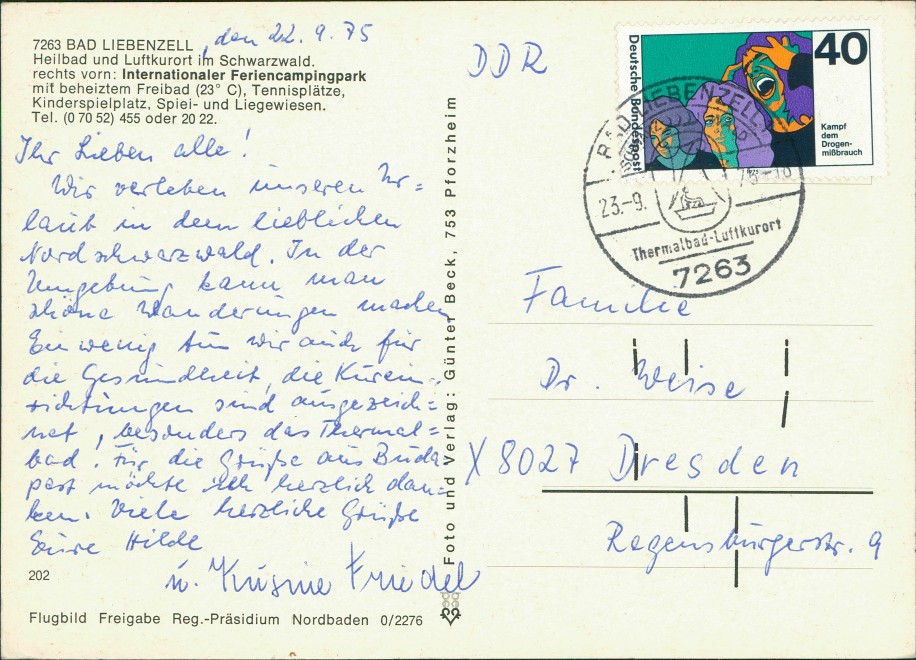 7263 BAD LIEBENZELL, den 22.9.75
Heilbad und Luftkurort im Schwarzwald.
rechts vorn: Internationaler Feriencampingpark
mit beheiztem Freibad (23° C), Tennisplätze,
Kinderspielplatz, Spiel- und Liegewiesen.
Tel. (0 70 52) 455 oder 20 22.
Ihr Lieben alle!
Wir verleben unseren Ur=
laub in dem lieblichen
Nordschwarzwald. In der
Umgebung kann man
schöne Wanderungen machen
Ein wenig tun wir auch für
die Gesundheit, die Kurein-
richtungen sind ausgezeich=
net, besonders das Thermal=
bad. Für die Grüße aus Buda
pest möchte ich herzlich dan=
ken. Viele herzliche Grüße
Eure Hilde
u. Friedel
202
Flugbild Freigabe Reg.-Präsidium Nordbaden 0/2276
Foto und Verlag: Günter Beck, 753 Pforzheim
DDR
Deutsche Bundespost
40
Kampf
dem
Drogen-
mißbrauch
BAD LIEBENZELL
23.-9.
Thermalbad-Luftkurort
7263
Familie
Dr. Weise
X 8027 Dresden
Regensburgerstr. 9